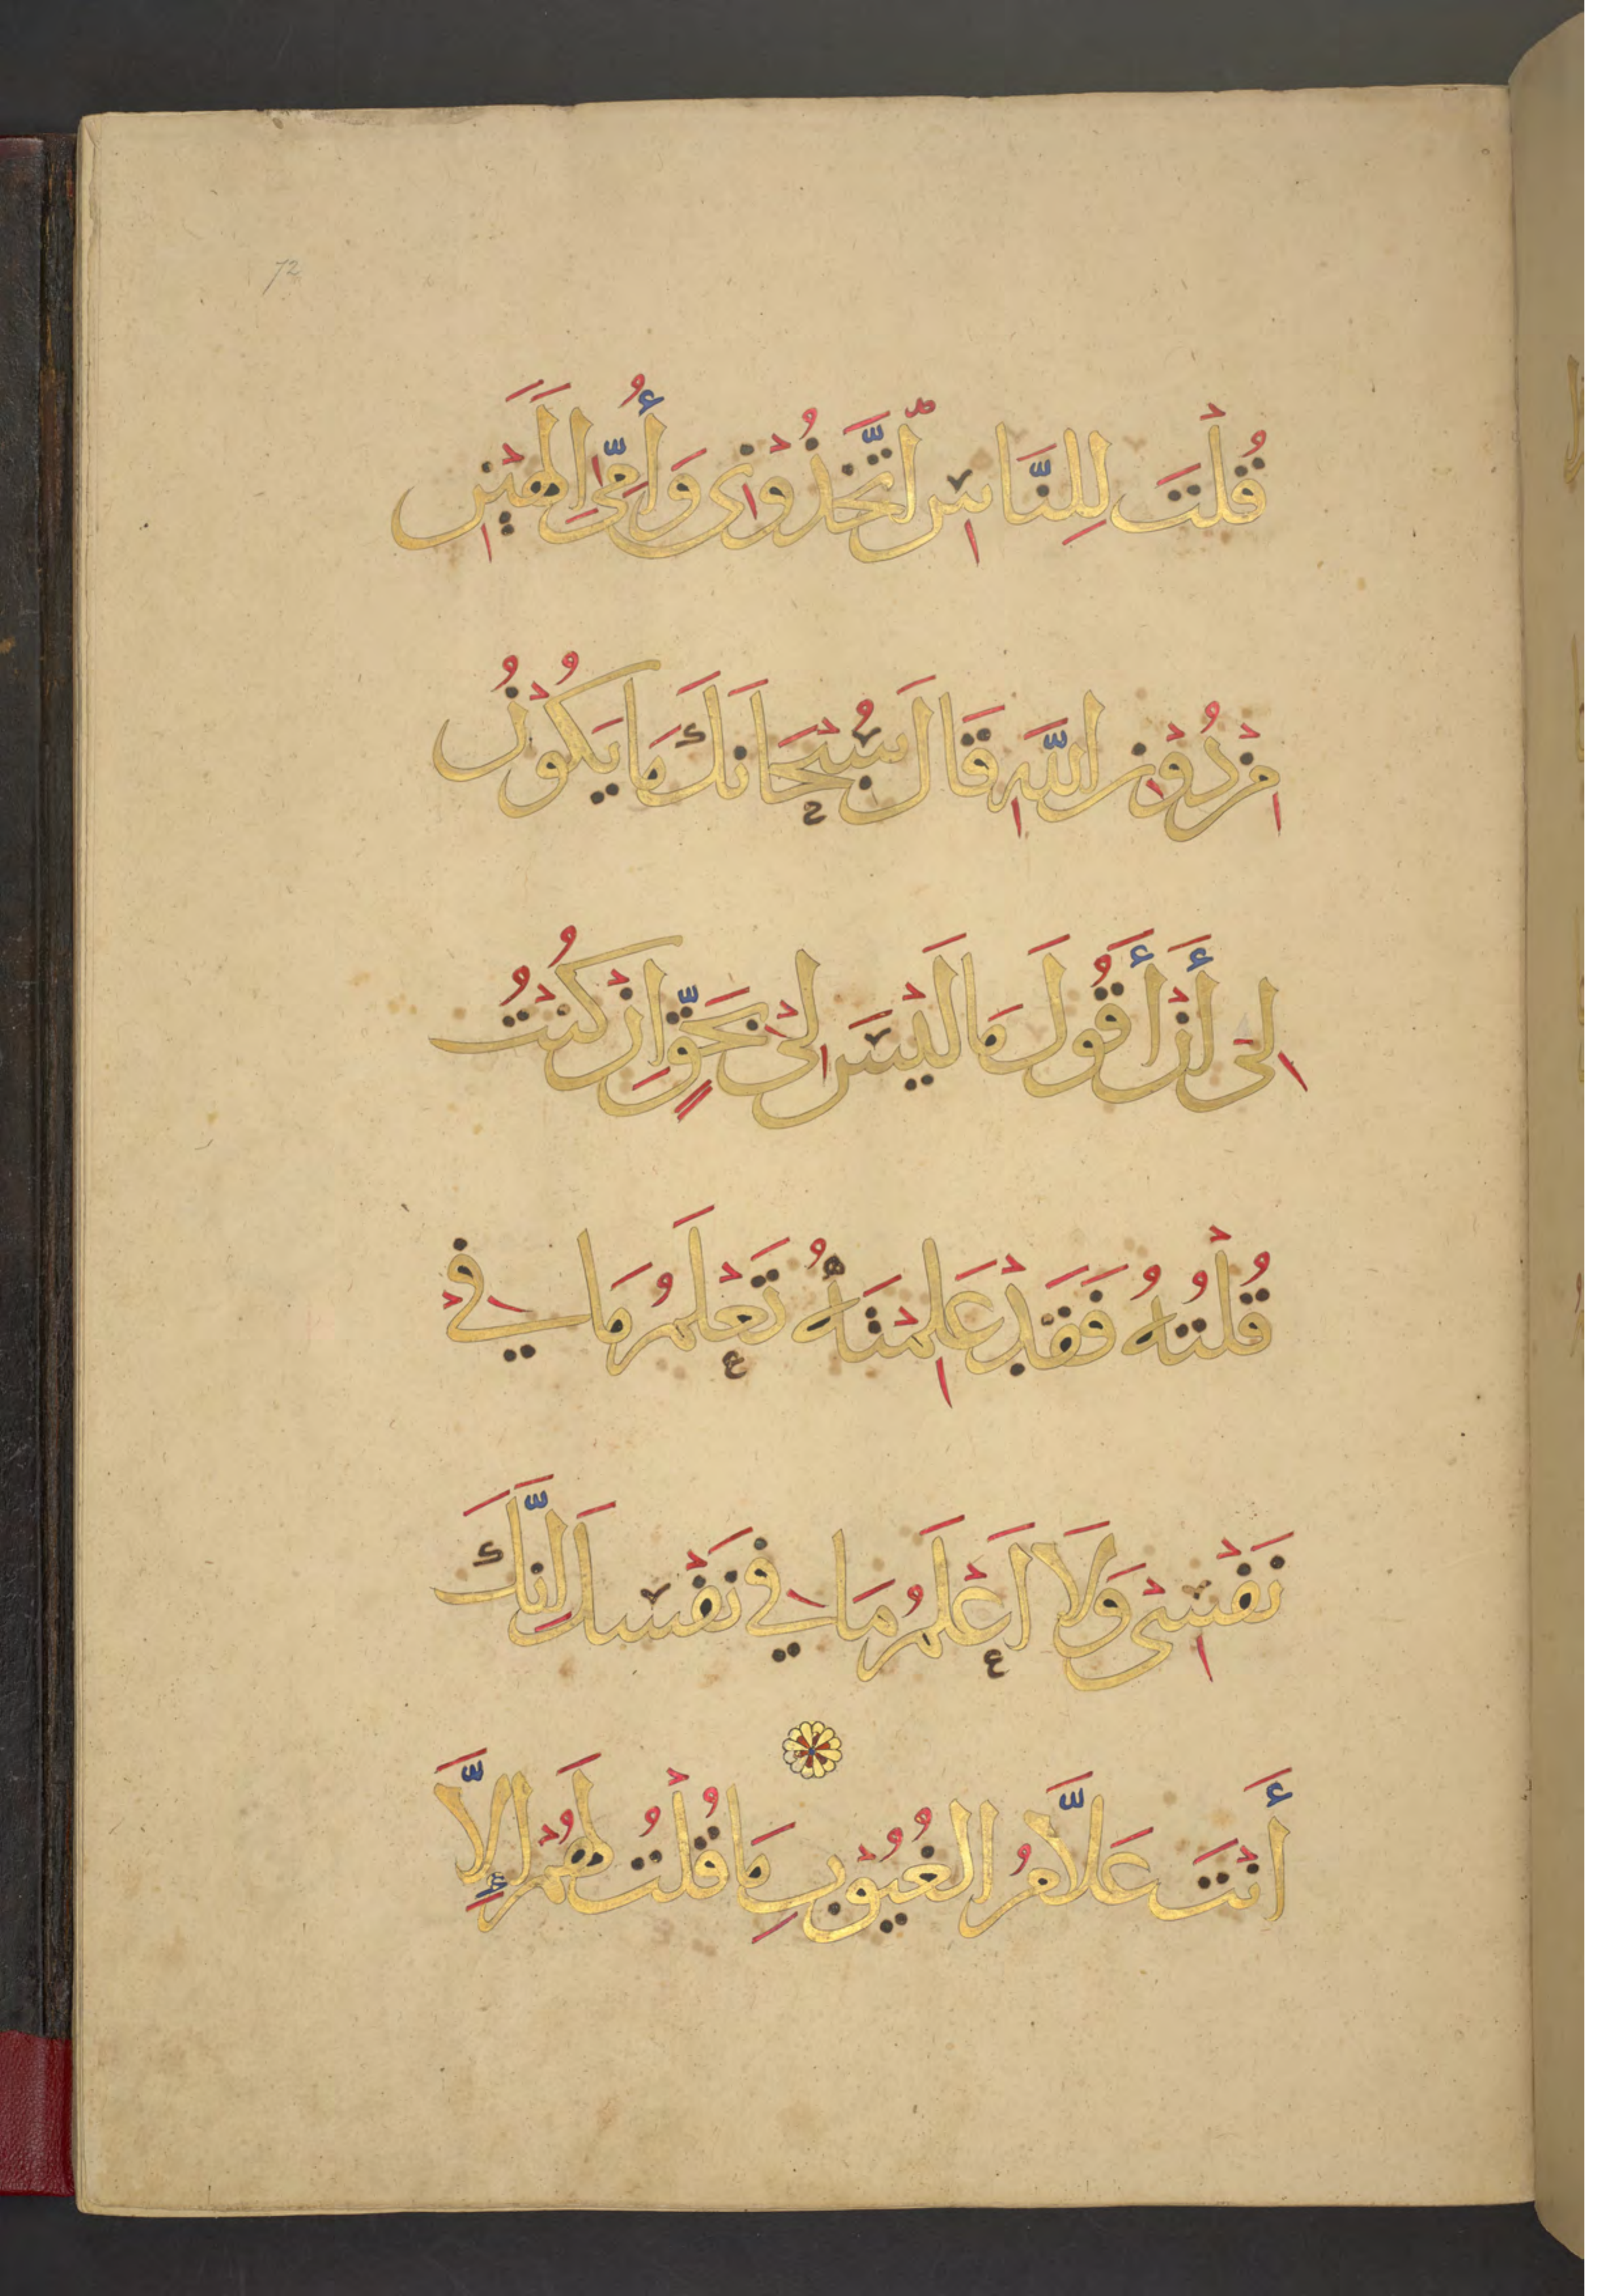 72
قُلْتَ لِلنَّاسِ اتَّخِذُوْنِى وَأُمِّىَ اِلٰهَيْنِ
مِنْ دُوْنِ اللَّهِ قَالَ سُبْحَانَكَ مَا يَكُوْنُ
لِى أَنْ أَقُولَ مَا لَيْسَ لِىْ بِحَقٍّ اِنْ كُنْتُ
قُلْتُهُ فَقَدْ عَلِمْتَهُ تَعْلَمُ مَا فِيْ
نَفْسِىْ وَلَا اَعْلَمُ مَا فِي نَفْسِكَ اِنَّكَ
أَنْتَ عَلَّامُ الْغُيُوْبِ مَا قُلْتُ لَهُمْ اِلَّا